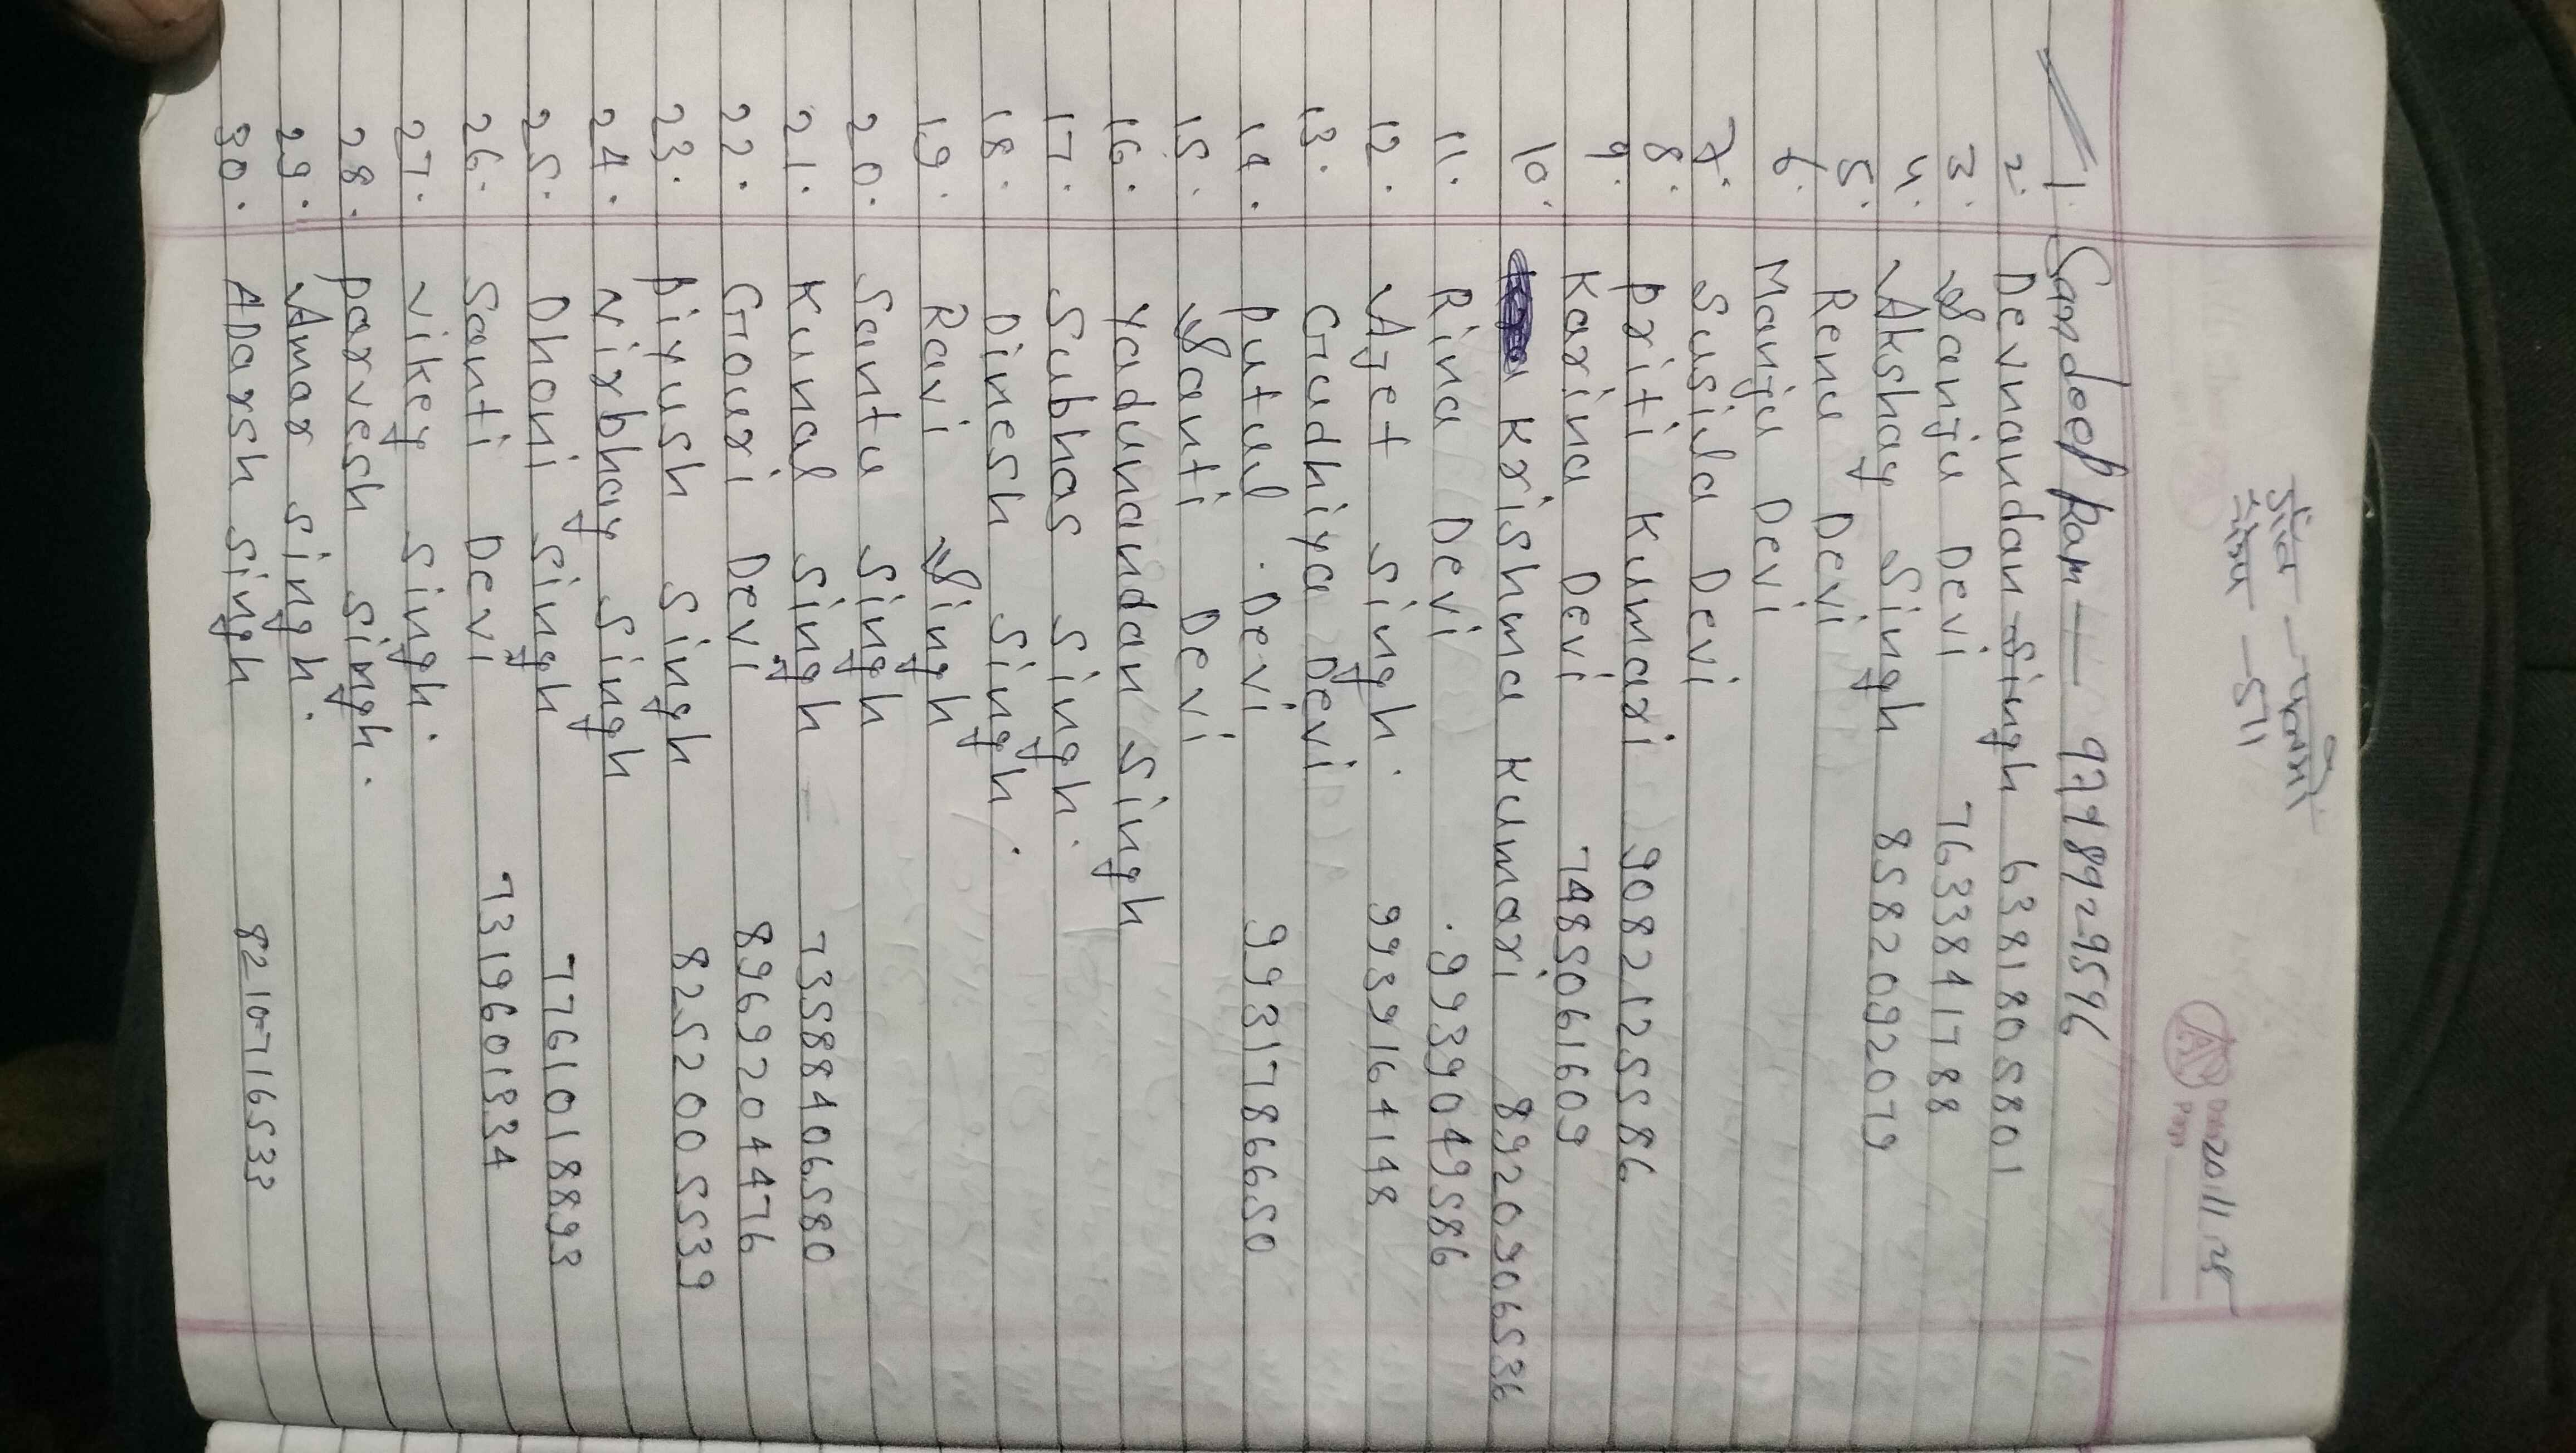 Date 20/11/25
Page
1. Sandeep Ram — 9778929596
2. Devnandan Singh 6381805801
3. Sanju Devi 7633841788
4. Akshay Singh 8582092079
5. Renu Devi
6. Manju Devi
7. Susila Devi
8. Priti Kumari 9082125586
9. Karina Devi 7485061609
10. Krishma Kumari 8920906536
11. Rina Devi . 9939049586
12. Ajet Singh . 9939164148
13. Gudhiya Devi
14. Putul . Devi 9931786650
15. Santi Devi
16. Yadunandan Singh
17. Subhas Singh.
18. Dinesh Singh .
19. Ravi Singh
20. Santu Singh
21. Kunal Singh 73588406580
22. Gouri Devi 8969204476
23. Piyush Singh 8252005539
24. Nirbhay Singh
25. Dhoni Singh 7761018893
26. Santi Devi 7319601334
27. Vikey Singh.
28. Parvesh Singh.
29. Amar Singh.
30. ADarsh Singh 8210716533